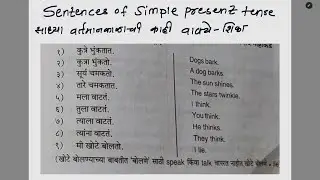 Sentences of Simple present tense
साध्या वर्तमानकाळाची काही वाक्ये - शिका
१) कुत्रे भुंकतात. Dogs bark.
२) कुत्रा भुंकतो. A dog barks.
३) सूर्य चमकतो. The sun shines.
४) तारे चमकतात. The stars twinkle.
५) मला वाटतं. I think.
६) तुला वाटतं. You think.
७) त्याला वाटतं. He thinks.
८) त्यांना वाटतं. They think.
९) मी खोटे बोलतो. I lie.
(खोटे बोलण्याच्या बाबतीत 'बोलणे' साठी speak किंवा talk वापरत नाहीत